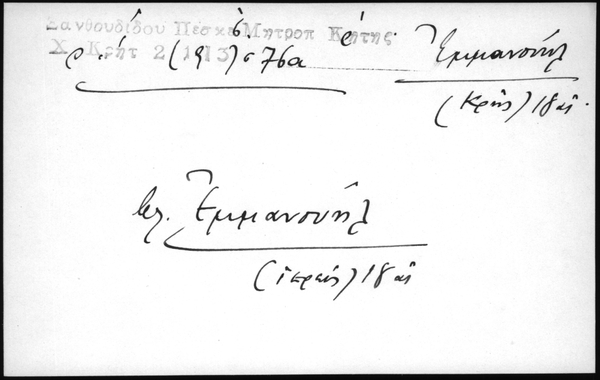 Ξανθουδίδου Πέσκε Μητροπ Κρήτης
Χ Κρήτ 2 1913 σ 76α
Ἐμμανουήλ
18 αἰ.
βλ. Ἐμμανουήλ
(ἱερεύς) 18 αἰ